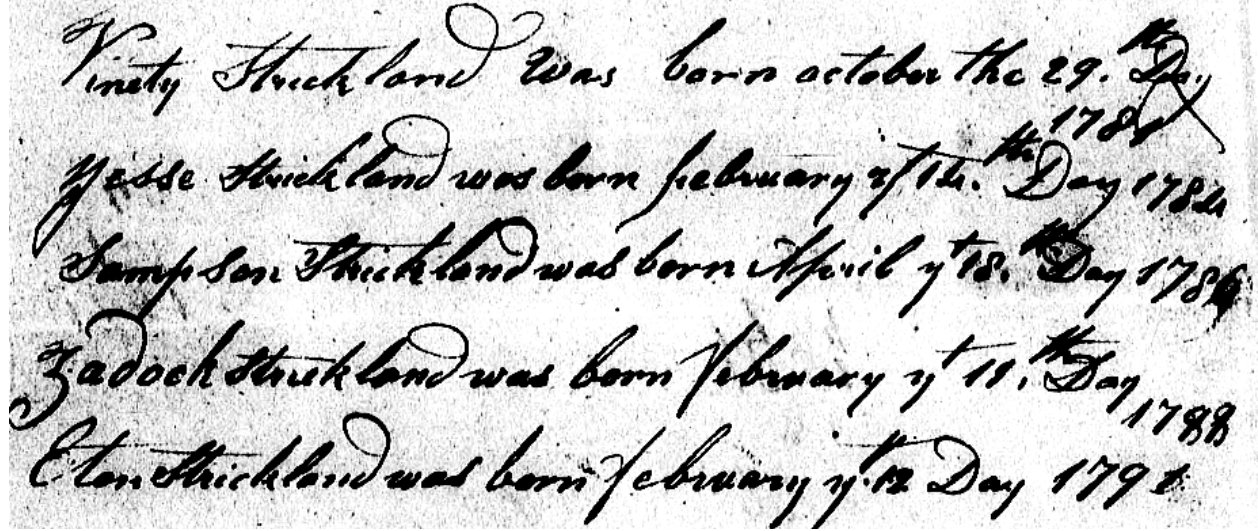 Vinety Strickland Was born october the 29.th Day
178
Yesse Strickland was born february yt 14.th Day 1784
Sampson Strickland was born April yt 18.th Day 1786
Zadock Strickland was born february yt 11.th Day
1788
Eton Strickland was born february yt 12th Day 1791